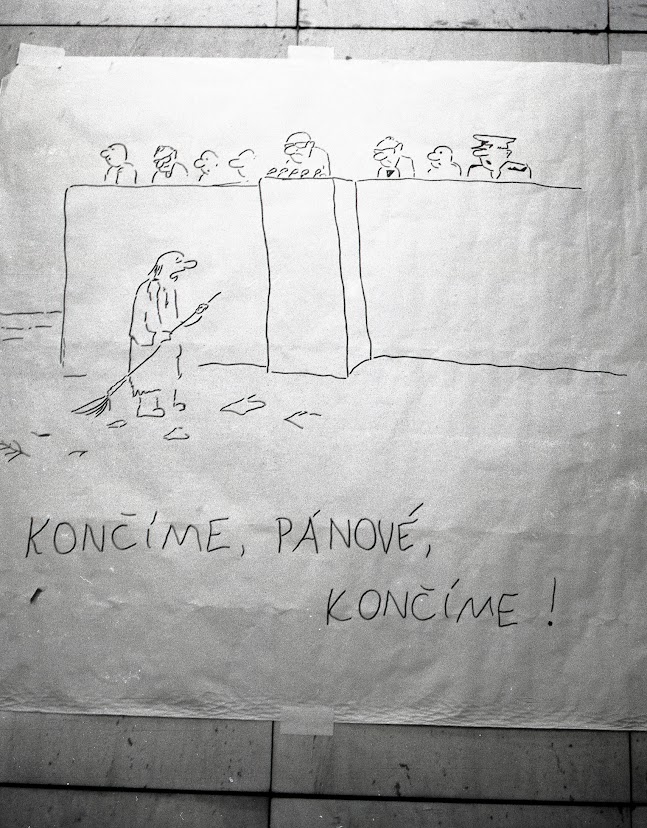 KONČÍME, PÁNOVÉ,
KONČÍME!